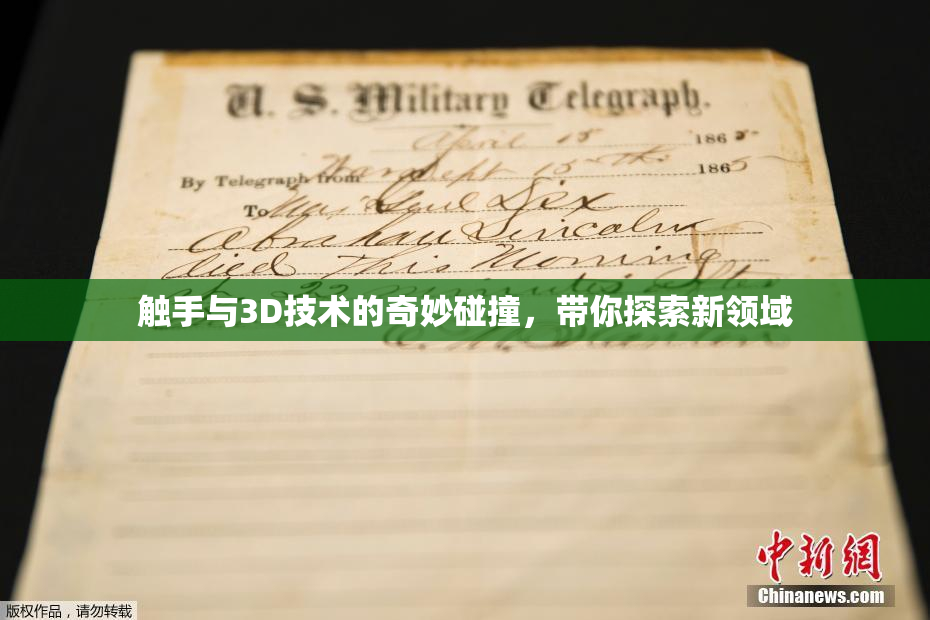 U. S. Military Telegraph.
April 15 1865
By Telegraph from War Dept 15th 1865
To Maj Genl Dix
Abraham Lincoln
died This Morning
at 22 minutes after
触手与3D技术的奇妙碰撞，带你探索新领域
E. M. Stanton
中新网
Chinanews.com
版权作品，请勿转载